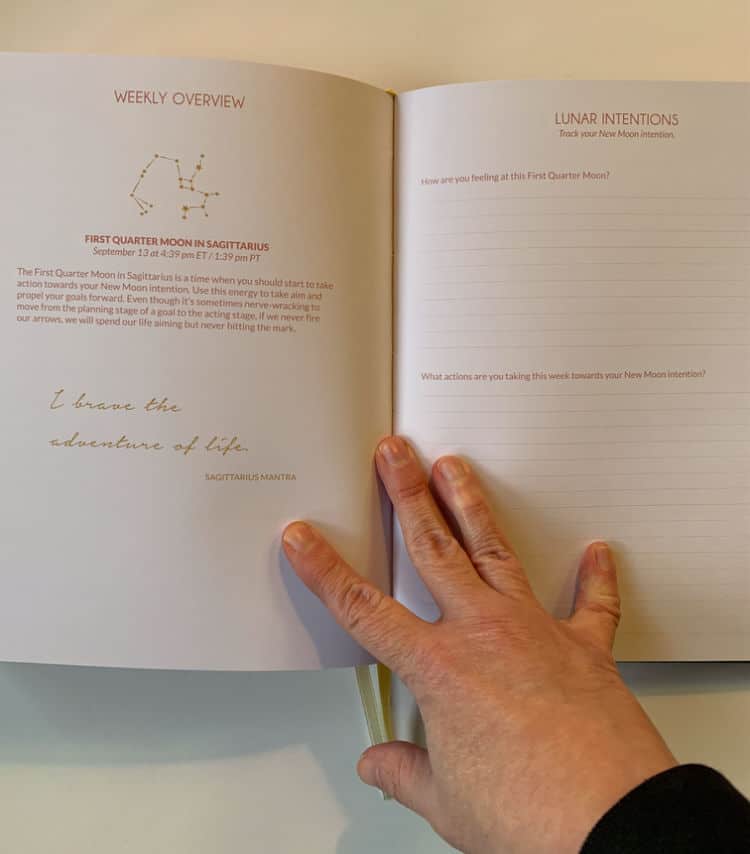 WEEKLY OVERVIEW
FIRST QUARTER MOON IN SAGITTARIUS
September 13 at 4:39 pm ET / 1:39 pm PT
The First Quarter Moon in Sagittarius is a time when you should start to take
action towards your New Moon intention. Use this energy to take aim and
propel your goals forward. Even though it's sometimes nerve-wracking to
move from the planning stage of a goal to the acting stage, if we never fire
our arrows, we will spend our life aiming but never hitting the mark.
I brave the
adventure of life.
SAGITTARIUS MANTRA
LUNAR INTENTIONS
Track your New Moon intention.
How are you feeling at this First Quarter Moon?
What actions are you taking this week towards your New Moon intention?